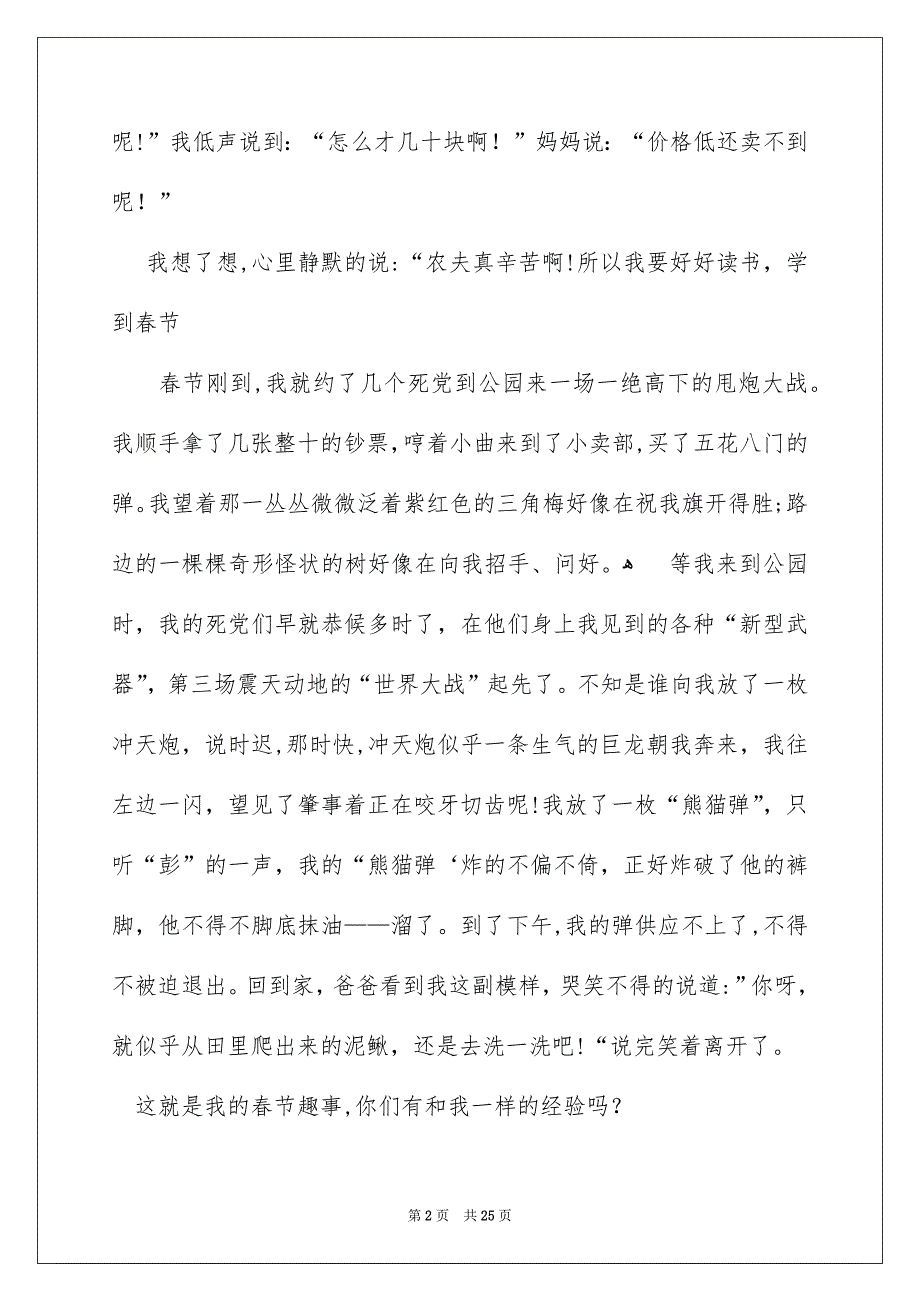 呢!”我低声说到:“怎么才几十块啊！”妈妈说:“价格低还卖不到
呢！”
我想了想,心里静默的说:“农夫真辛苦啊!所以我要好好读书，学
到春节
春节刚到,我就约了几个死党到公园来一场一绝高下的甩炮大战。
我顺手拿了几张整十的钞票,哼着小曲来到了小卖部,买了五花八门的
弹。我望着那一丛丛微微泛着紫红色的三角梅好像在祝我旗开得胜;路
边的一棵棵奇形怪状的树好像在向我招手、问好。ﻫ 等我来到公园
时，我的死党们早就恭候多时了，在他们身上我见到的各种“新型武
器”，第三场震天动地的“世界大战”起先了。不知是谁向我放了一枚
冲天炮，说时迟,那时快,冲天炮似乎一条生气的巨龙朝我奔来，我往
左边一闪，望见了肇事着正在咬牙切齿呢!我放了一枚“熊猫弹”，只
听“彭”的一声，我的“熊猫弹‘炸的不偏不倚，正好炸破了他的裤
脚，他不得不脚底抹油——溜了。到了下午,我的弹供应不上了,不得
不被迫退出。回到家，爸爸看到我这副模样，哭笑不得的说道:”你呀，
就似乎从田里爬出来的泥鳅，还是去洗一洗吧!“说完笑着离开了。
这就是我的春节趣事,你们有和我一样的经验吗？
第 2 页 共 25 页